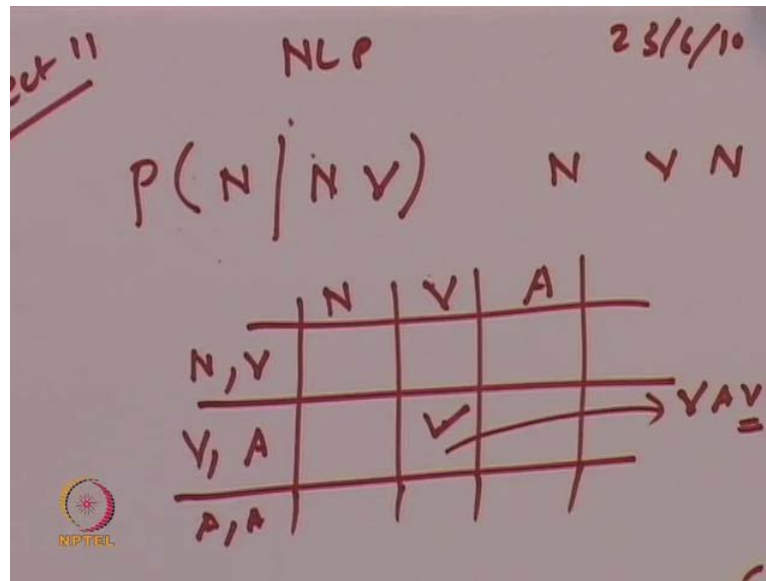 Lect 11 NLP 23/6/10
P(N | N V) N V N
N V A
N, V
V, A ✓ → V A V
A, A
NPTEL